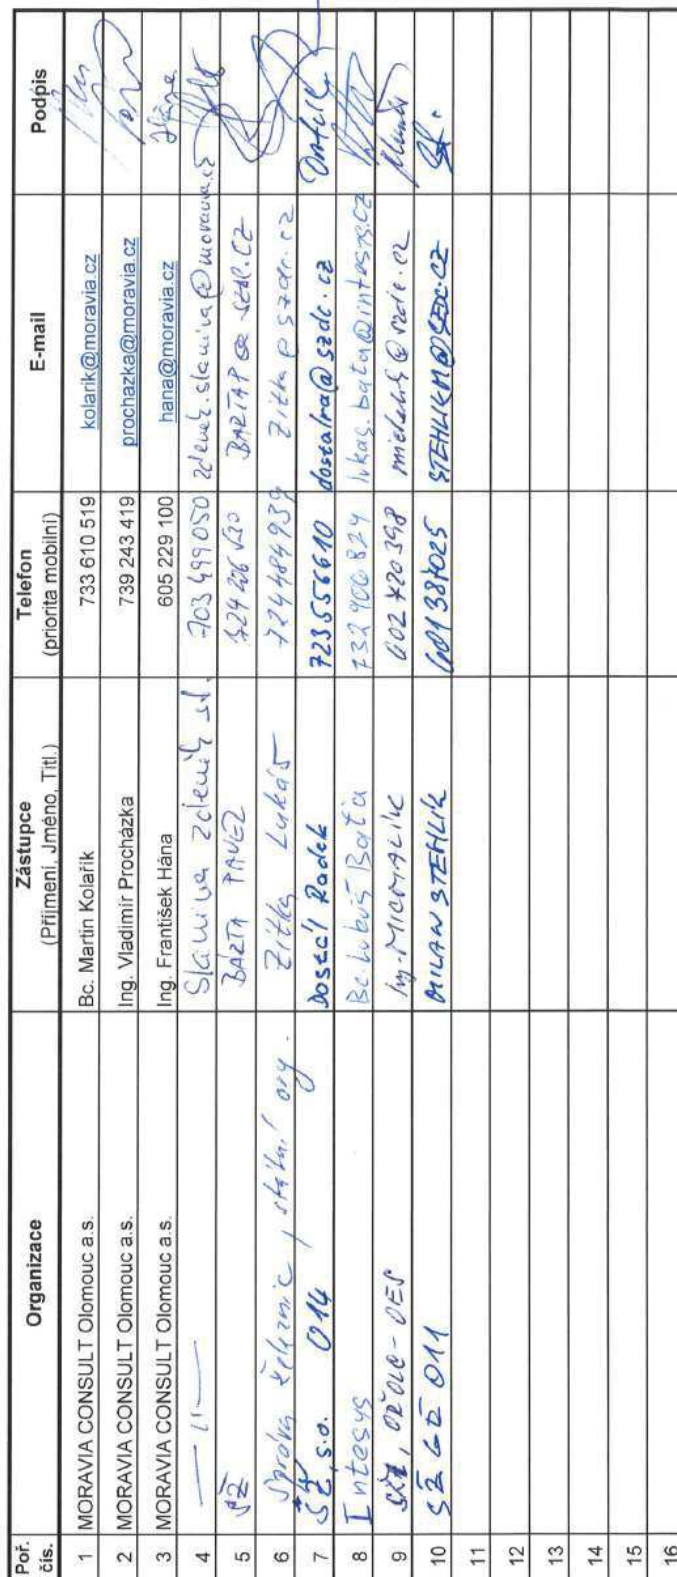 Poř. čís. Organizace Zástupce (Příjmení, Jméno, Titl.) Telefon (priorita mobilní) E-mail Podpis
1 MORAVIA CONSULT Olomouc a.s. Bc. Martin Kolařík 733 610 519 kolarik@moravia.cz
2 MORAVIA CONSULT Olomouc a.s. Ing. Vladimír Procházka 739 243 419 prochazka@moravia.cz
3 MORAVIA CONSULT Olomouc a.s. Ing. František Hána 605 229 100 hana@moravia.cz
4 — 11 — Slanina Zdeněk st. 703 499 050 zdenek.slanina@moravia.cz
5 SŽ BÁRTA PAVEL BARTAP@SZDC.CZ
6 Správa železnic, státní org. Zitka Lukáš 724484939 Zitka@szdc.cz
7 SŽ, s.o. O14 Dostál Radek 723556610 dostalra@szdc.cz
8 Intesys Bc. Luboš Baťa 732 906 824 lukas.bata@intesys.cz
9 Ing. MICHALÍK 602 720 398 @szdc.cz
10 SŽ GŘ O11 MILAN STEHLÍK STEHLIKM@SZDC.CZ
11
12
13
14
15
16